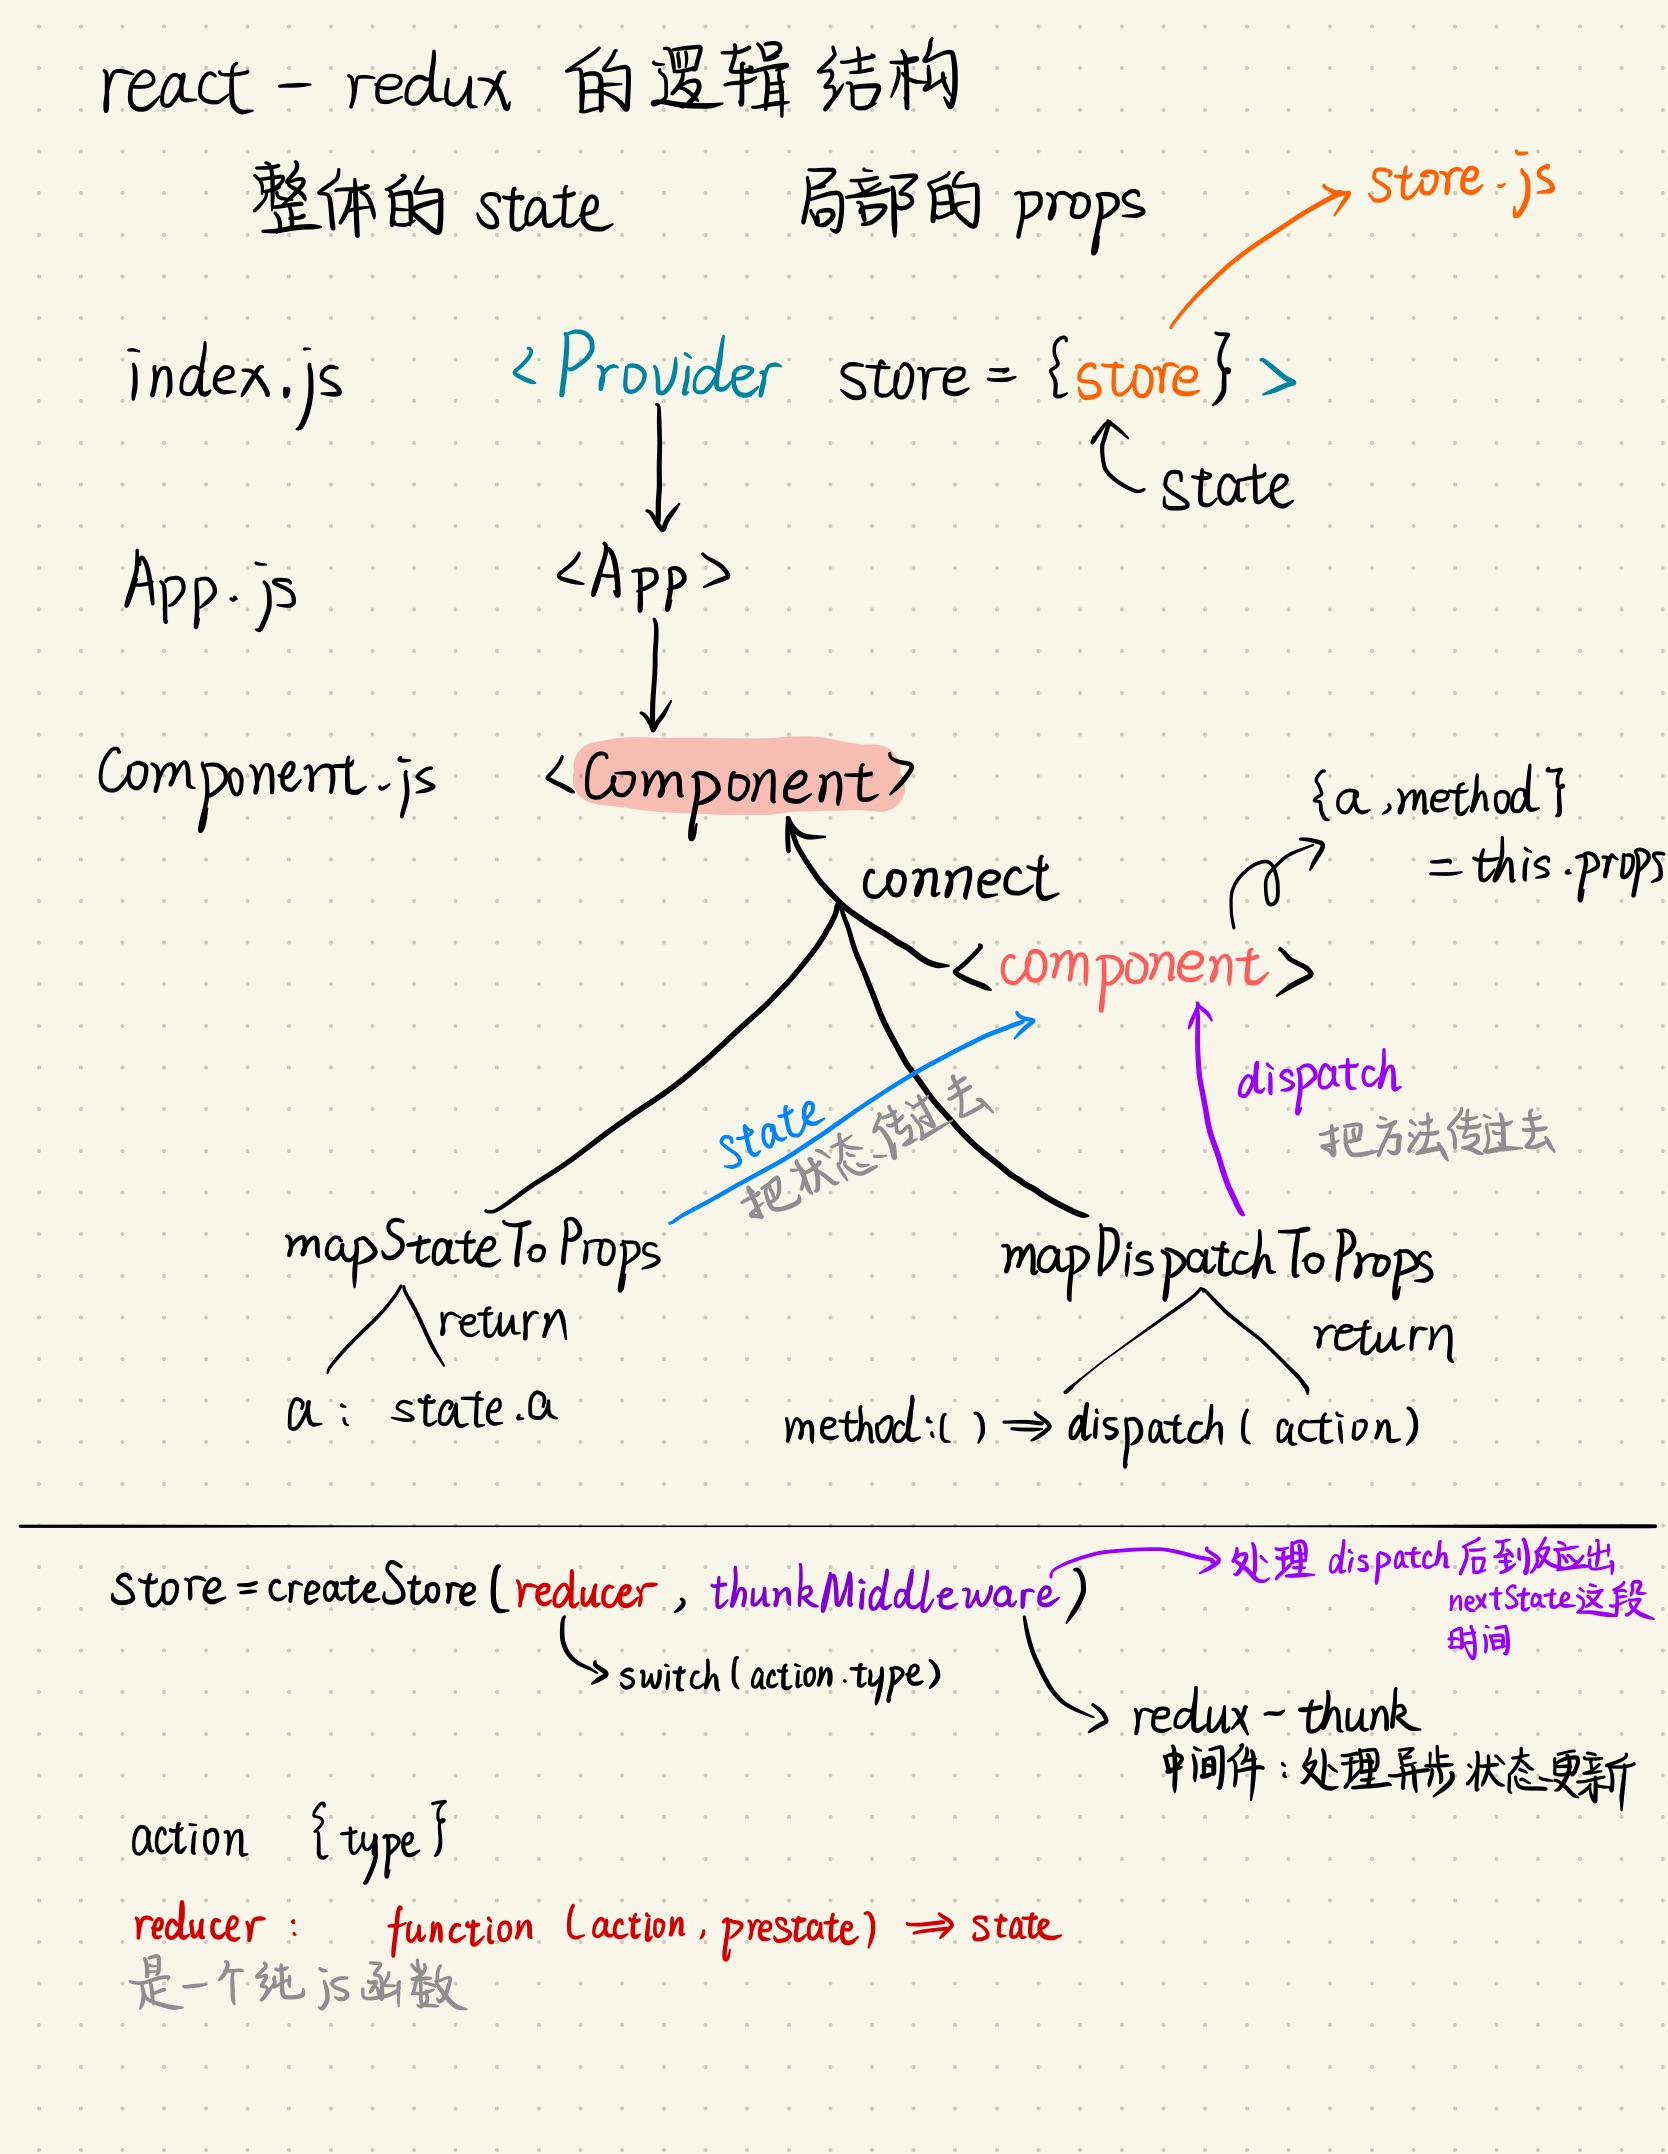 react - redux 的逻辑结构
整体的 state 局部的 props
store.js
index.js <Provider store = {store} >
state
App.js <App>
Component.js <Component>
{a, method}
= this.props
connect
<component>
state
把状态传过去
dispatch
把方法传过去
mapStateToProps
mapDispatchToProps
return
return
a : state.a
method:( ) => dispatch ( action)
store = createStore ( reducer , thunkMiddleware )
处理 dispatch 后到反应出
nextState 这段
时间
switch (action.type)
redux - thunk
中间件 : 处理异步状态更新
action {type}
reducer : function (action, prestate) => state
是一个纯 js 函数